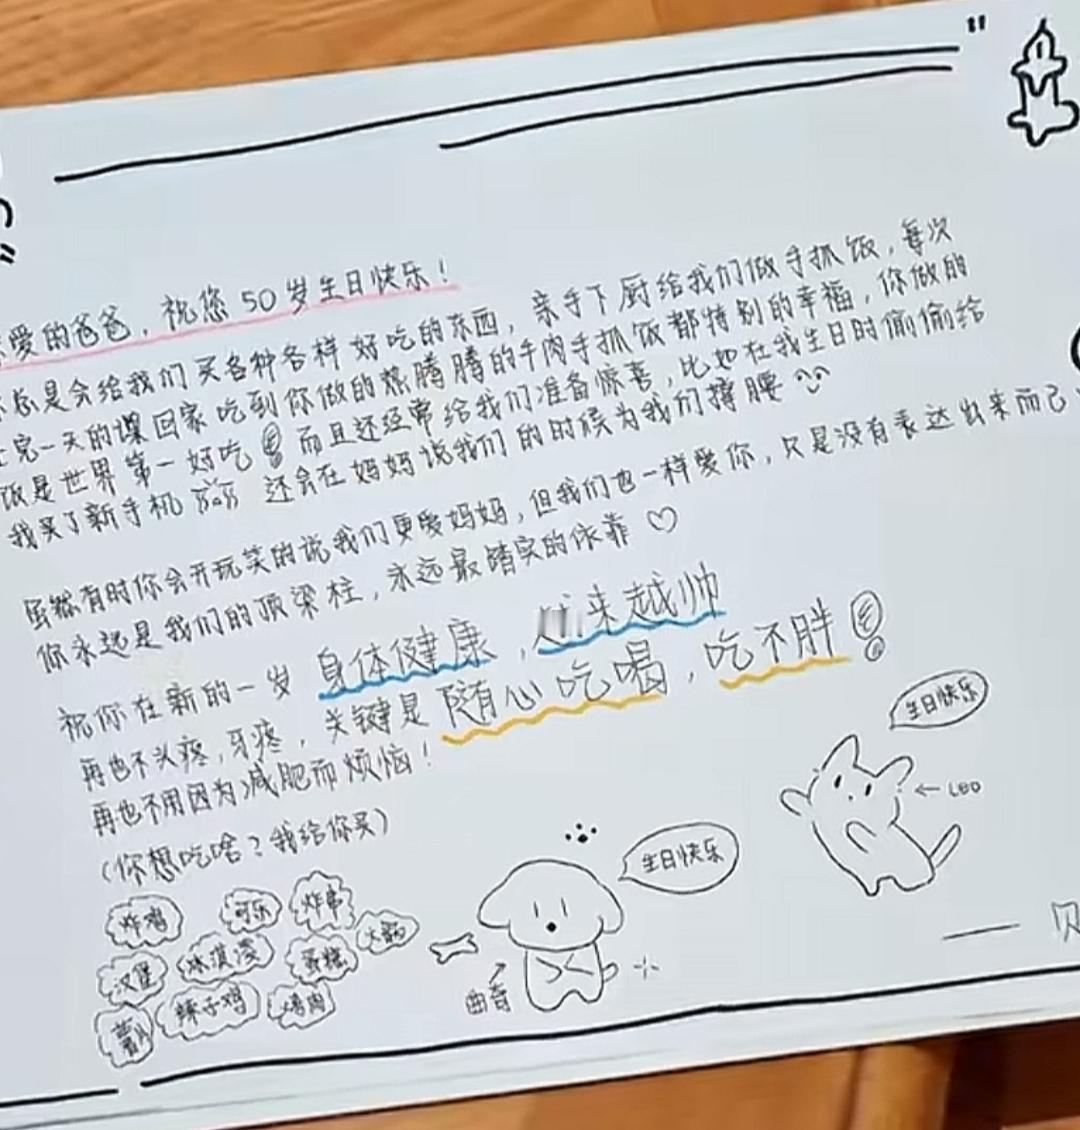 爱的爸爸，祝您50岁生日快乐！
总是会给我们买各种各样好吃的东西，亲手下厨给我们做手抓饭，每次
完一天的课回家吃到你做的热腾腾的牛肉手抓饭都特别的幸福，你做的
饭是世界第一好吃 而且还经常给我们准备惊喜，比如在我生日时偷偷给
我买了新手机 还会在妈妈说我们的时候为我们撑腰
虽然有时你会开玩笑的说我们更爱妈妈，但我们也一样爱你，只是没有表达出来而已
你永远是我们的顶梁柱，永远最踏实的依靠♡
祝你在新的一岁身体健康，越来越帅
再也不头疼，牙疼，关键是随心吃喝，吃不胖
再也不用因为减肥而烦恼！
(你想吃啥？我给你买)
生日快乐
← Leo
生日快乐
曲奇
炸鸡 可乐 炸串
汉堡 冰淇淩 蛋糕 火锅
辣子鸡 烤肉
薯
—— 贝